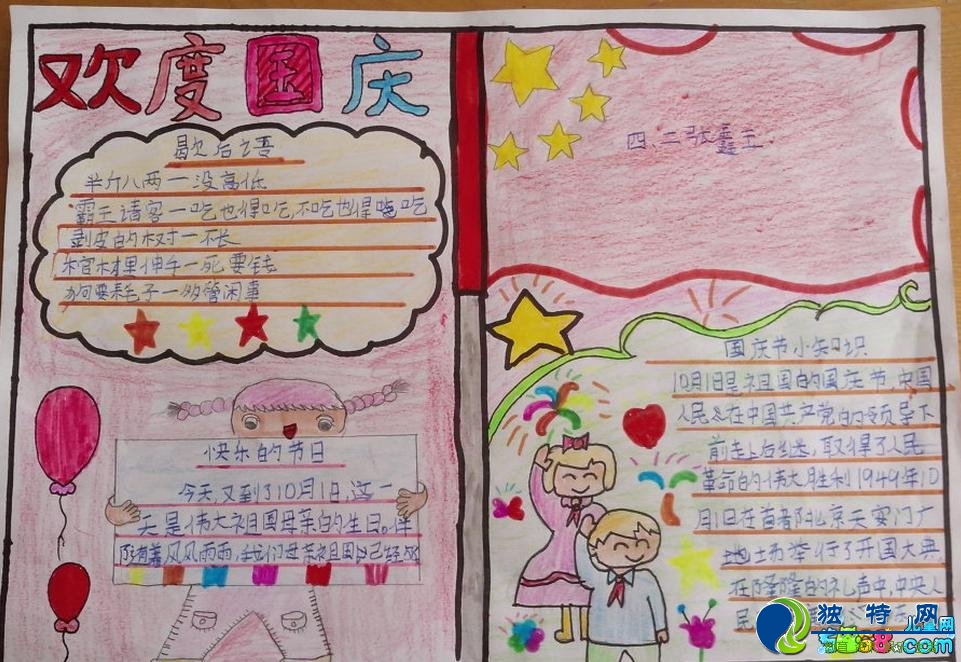 欢度国庆
歇后语
半斤八两一没高低
霸王请客一吃也得吃,不吃也得吃
剥皮的树一不长
棺材里伸手一死要钱
狗拿耗子一多管闲事
四、二 张鑫玉
快乐的节日
今天,又到了10月1日,这一
天是伟大祖国母亲的生日。伴
随着风风雨雨,我们母亲祖国已经
国庆节小知识
10月1日是祖国的国庆节,中国
人民在中国共产党的领导下
前赴后继,取得了人民
革命的伟大胜利1949年10
月1日在首都北京天安门广
场举行了开国大典
在隆隆的礼声中,中央人
民
独特网
儿童网
com